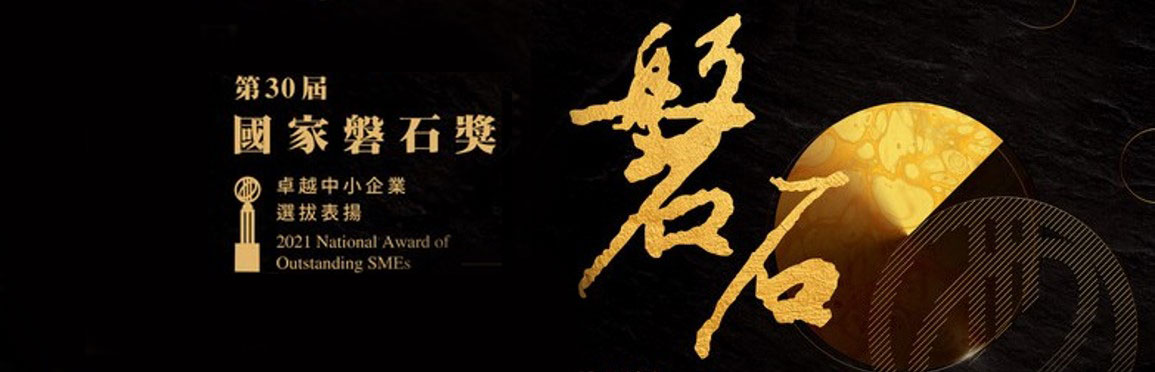 第30屆
國家磐石獎
卓越中小企業
選拔表揚
2021 National Award of
Outstanding SMEs
磐石